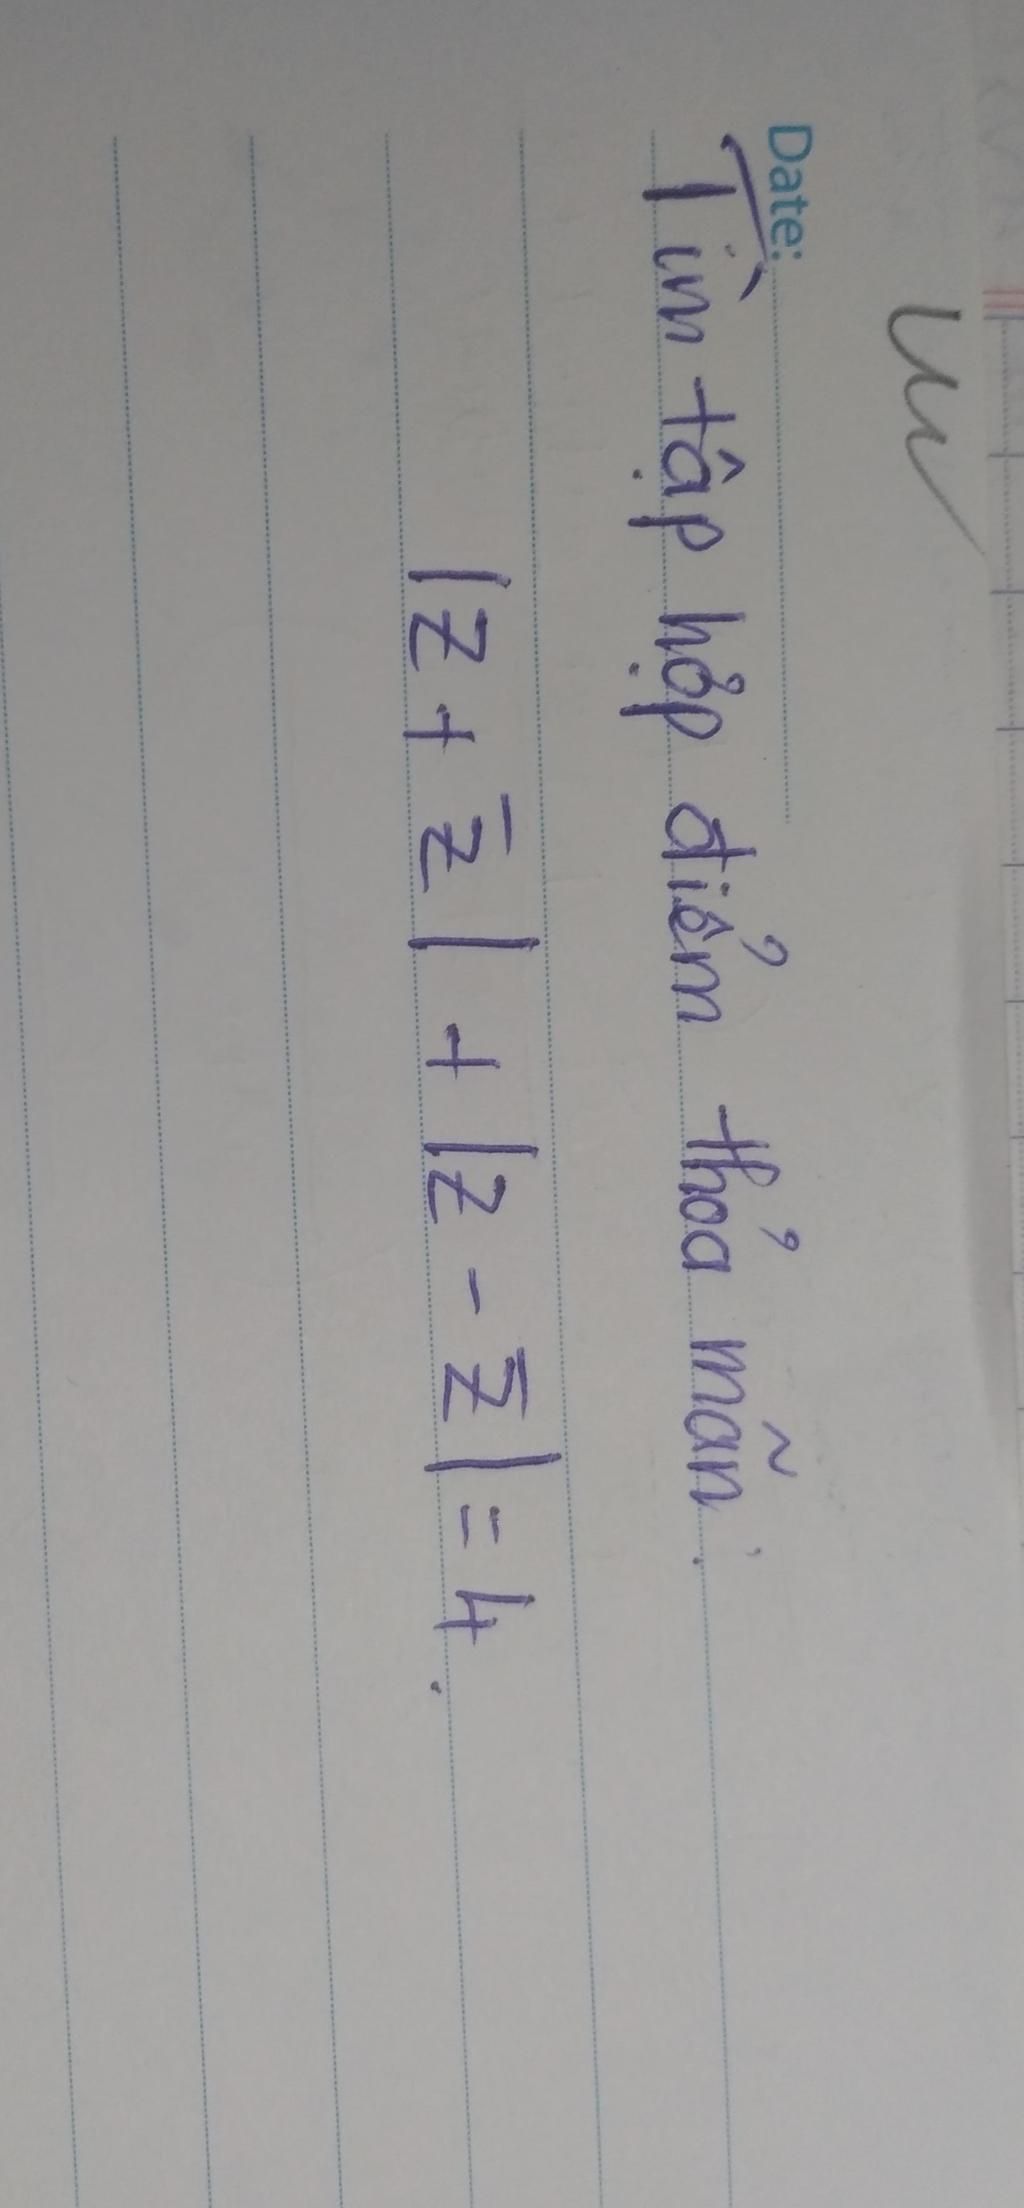 Date:
Tìm tập hợp điểm thỏa mãn:
|z + z̄| + |z - z̄| = 4.